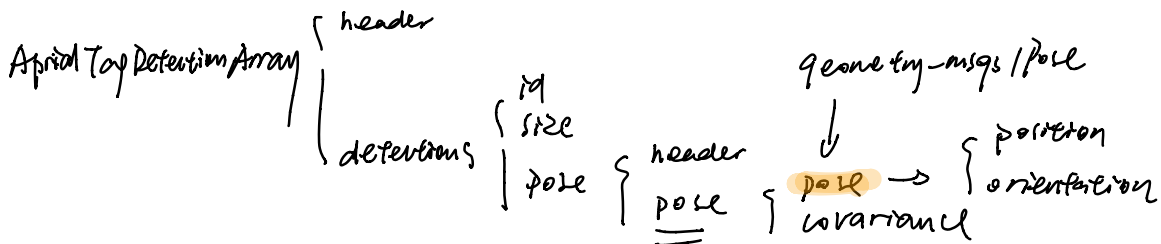 AprilTagDetectionArray
header
detections
id
size
pose
header
pose
geometry-msgs/Pose
pose → position
orientation
covariance